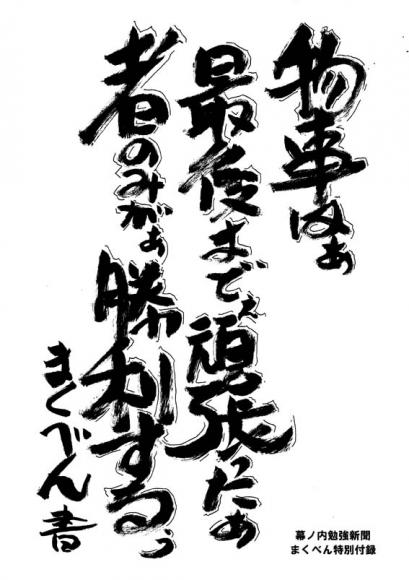 物事はぁ
最後までぇ頑張たぁ
者のみがぁ勝利するぅ
まくべん書
幕ノ内勉強新聞
まくべん特別付録